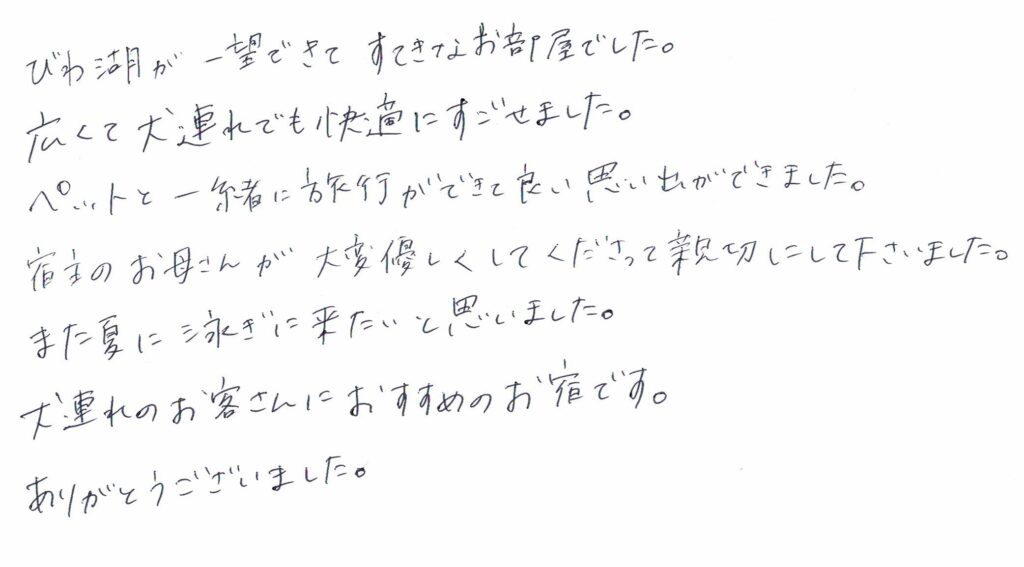 びわ湖が一望できて すてきなお部屋でした。
広くて犬連れでも快適にすごせました。
ペットと一緒に旅行ができて良い思い出ができました。
宿主のお母さんが大変優しくしてくださって親切にして下さいました。
また夏に泳ぎに来たいと思いました。
犬連れのお客さんにおすすめのお宿です。
ありがとうございました。